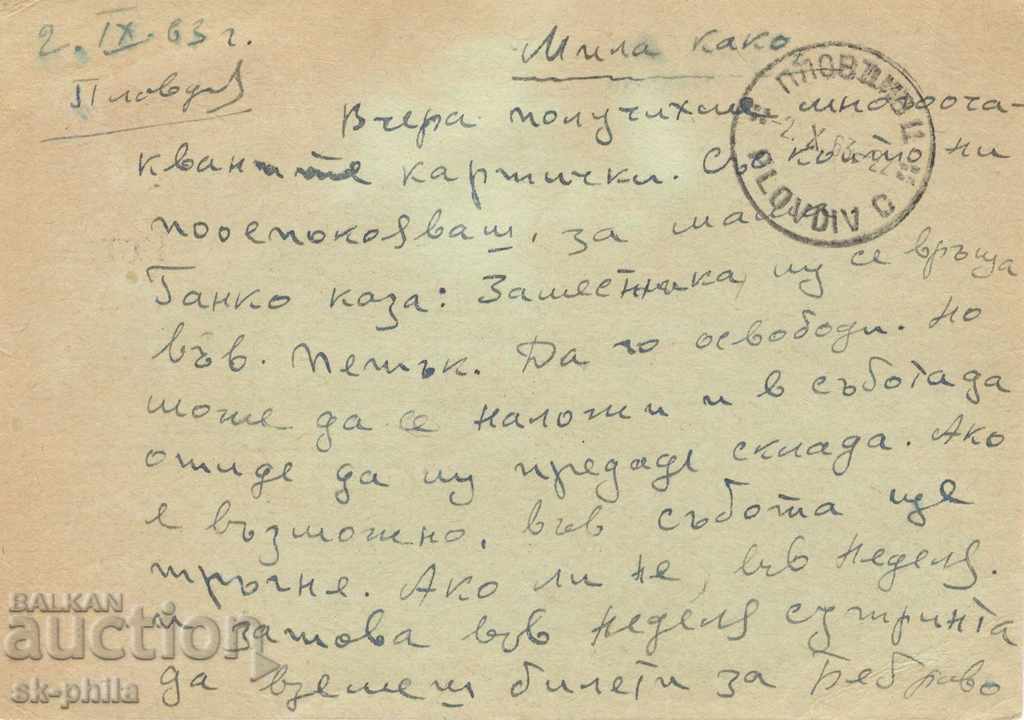 2. IX. 63 г.
Пловдив
Мила како
Вчера получихме многооча-
кваните картички. С които ни
поуспокояваш, за мама.
Ганко каза: Заместника му се връща
във. петък. Да го освободи. Но
може да се наложи и в събота да
отиде да му предаде склада. Ако
е възможно, във събота ще
тръгне. Ако ли не, във неделя.
и затова във неделя сутринта
да вземеш билети за Беброво
ПЛОВДИВ Ц
PLOVDIV C
BALKAN
auction
sk-phila